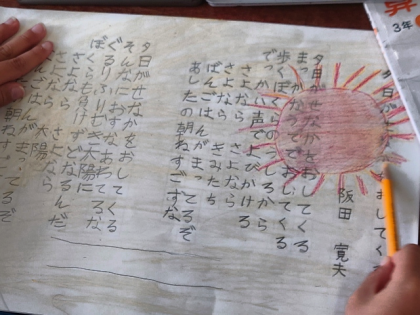 夕日がせ おしてく
阪田 寛夫
夕日がせなかをおしてくる
まっかなうででおしてくる
歩くぼくらのうしろから
でっかい声でよびかける
さよなら さよなら
さよなら きみたち
ばんごはんがまってるぞ
あしたの朝ねすごすな
夕日がせなかをおしてくる
そんなにおすなあわてるな
ぐるりふりむき太陽に
ぼくらも負けずどなるんだ
さよなら さよなら
さよなら 太陽
ごはんがまってるぞ
朝ねす
3年